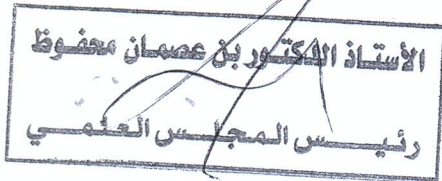 الأستاذ الدكتور بن عصمان محفوظ
رئيس المجلس العلمي